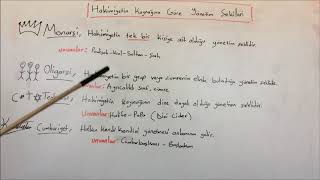 Hakimiyetin Kaynağına Göre Yönetim Şekilleri
Monarşi, Hakimiyetin tek bir kişiye ait olduğu yönetim şeklidir.
Unvanlar: Padişah-Kral-Sultan-Şah
Oligarşi, Hakimiyetin bir grup veya zümrenin elinde bulunduğu yönetim şeklidir.
Ayrıcalıklı sınıf, zümre.
Teokrasi, Hakimiyetin kaynağının dine dayalı olduğu yönetim şeklidir.
Unvanlar: Halife-Papa (Dini Lider)
Cumhuriyet, Halkın kendi kendini yönetmesi anlamına gelir.
Unvanlar: Cumhurbaşkanı-Başbakan